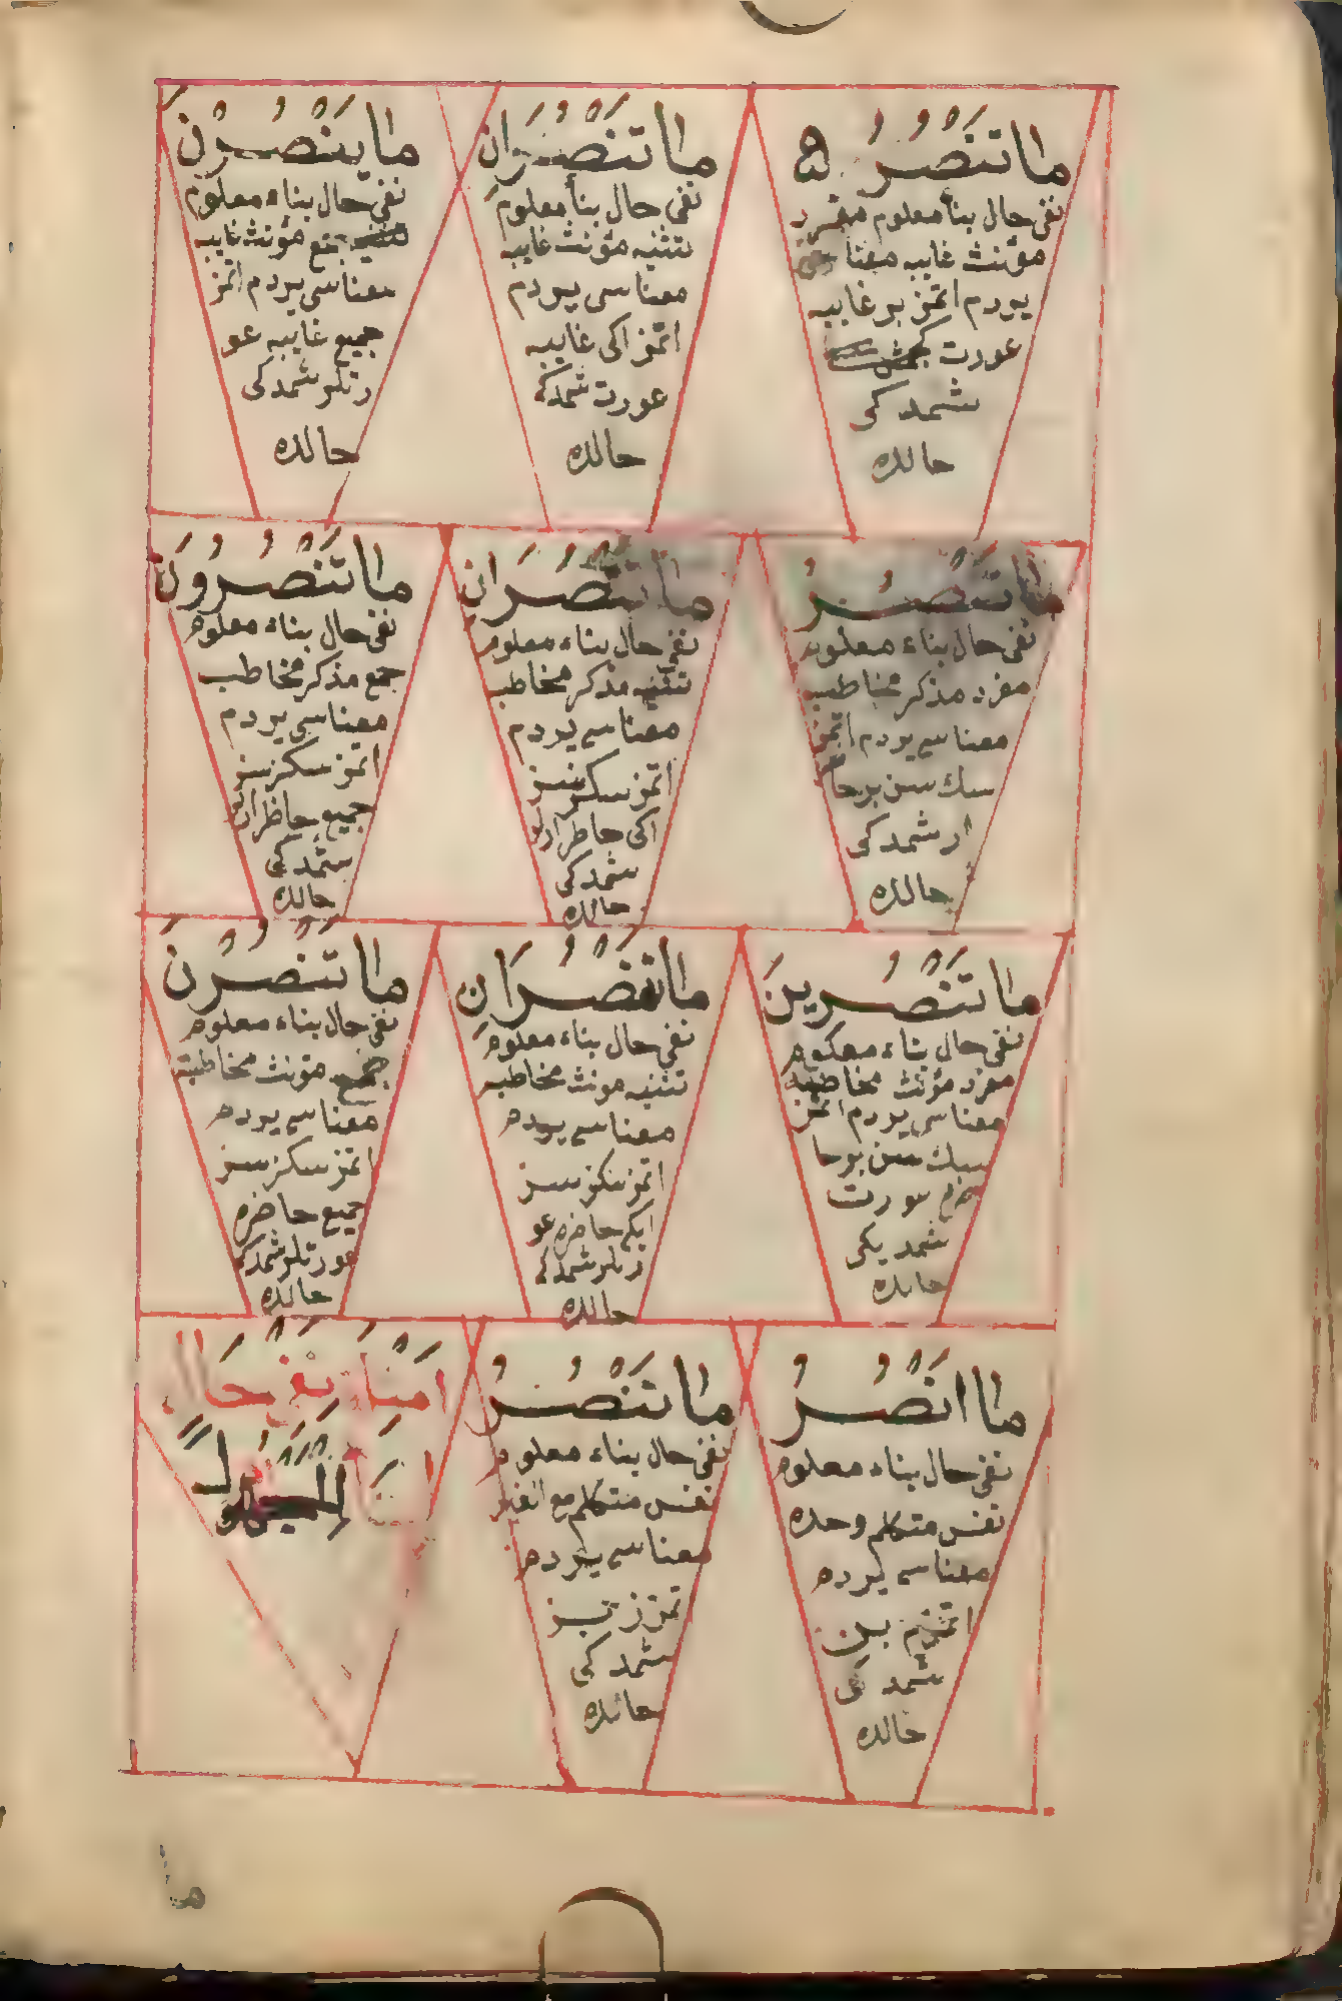 ما تنصر
نفى حال بنا معلوم مفرد
مؤنث غايبه معنا
يردم اتمز بر غايبه
عورت
شمدكى
حالده
ما تنصران
نفى حال بنا معلوم
تثنيه مؤنث غايبه
معناسى يردم
اتمز اكى غايبه
عورت شمدكى
حالده
ما ينصرن
نفى حال بناء معلوم
جمع مؤنث غايبه
معناسى يردم اتمز
جميع غايبه عو
رتلر شمدكى
حالده
ما تنصر
نفى حال بناء معلوم
مفرد مذكر مخاطب
معناسى يردم اتمز
سك سن بر حا
ار شمدكى
حالده
ما تنصران
نفى حال بناء معلوم
تثنيه مذكر مخاطب
معناسى يردم
اتمز سكز سز
اكى حاظر ارلر
شمدكى
حالده
ما تنصرون
نفى حال بناء معلوم
جمع مذكر مخاطب
معناسى يردم
اتمز سكز سز
جميع حاظر ارلر
شمدكى
حالده
ما تنصرين
نفى حال بناء معلوم
مفرد مؤنث مخاطبه
معناسى يردم اتمز
سك سن بر حا
عورت
شمديكى
حالده
ما تنصران
نفى حال بناء معلوم
تثنيه مونث مخاطبه
معناسى يردم
اتمز سكز سز
ايكى حاضره عو
رتلر شمدكى
حالده
ما تنصرن
نفى حال بناء معلوم
جمع مؤنث مخاطبة
معناسى يردم
اتمز سكز سز
جميع حاضره
عورتلر شمدكى
حالده
ما انصر
نفى حال بناء معلوم
نفس متكلم وحده
معناسى يردم
اتمزم بن
شمدكى
حالده
ما ننصر
نفى حال بناء معلوم
نفس متكلم مع الغير
معناسى يردم
تمزز بز
شمدكى
حالده
امثلة نفى حال
المجهول
ما